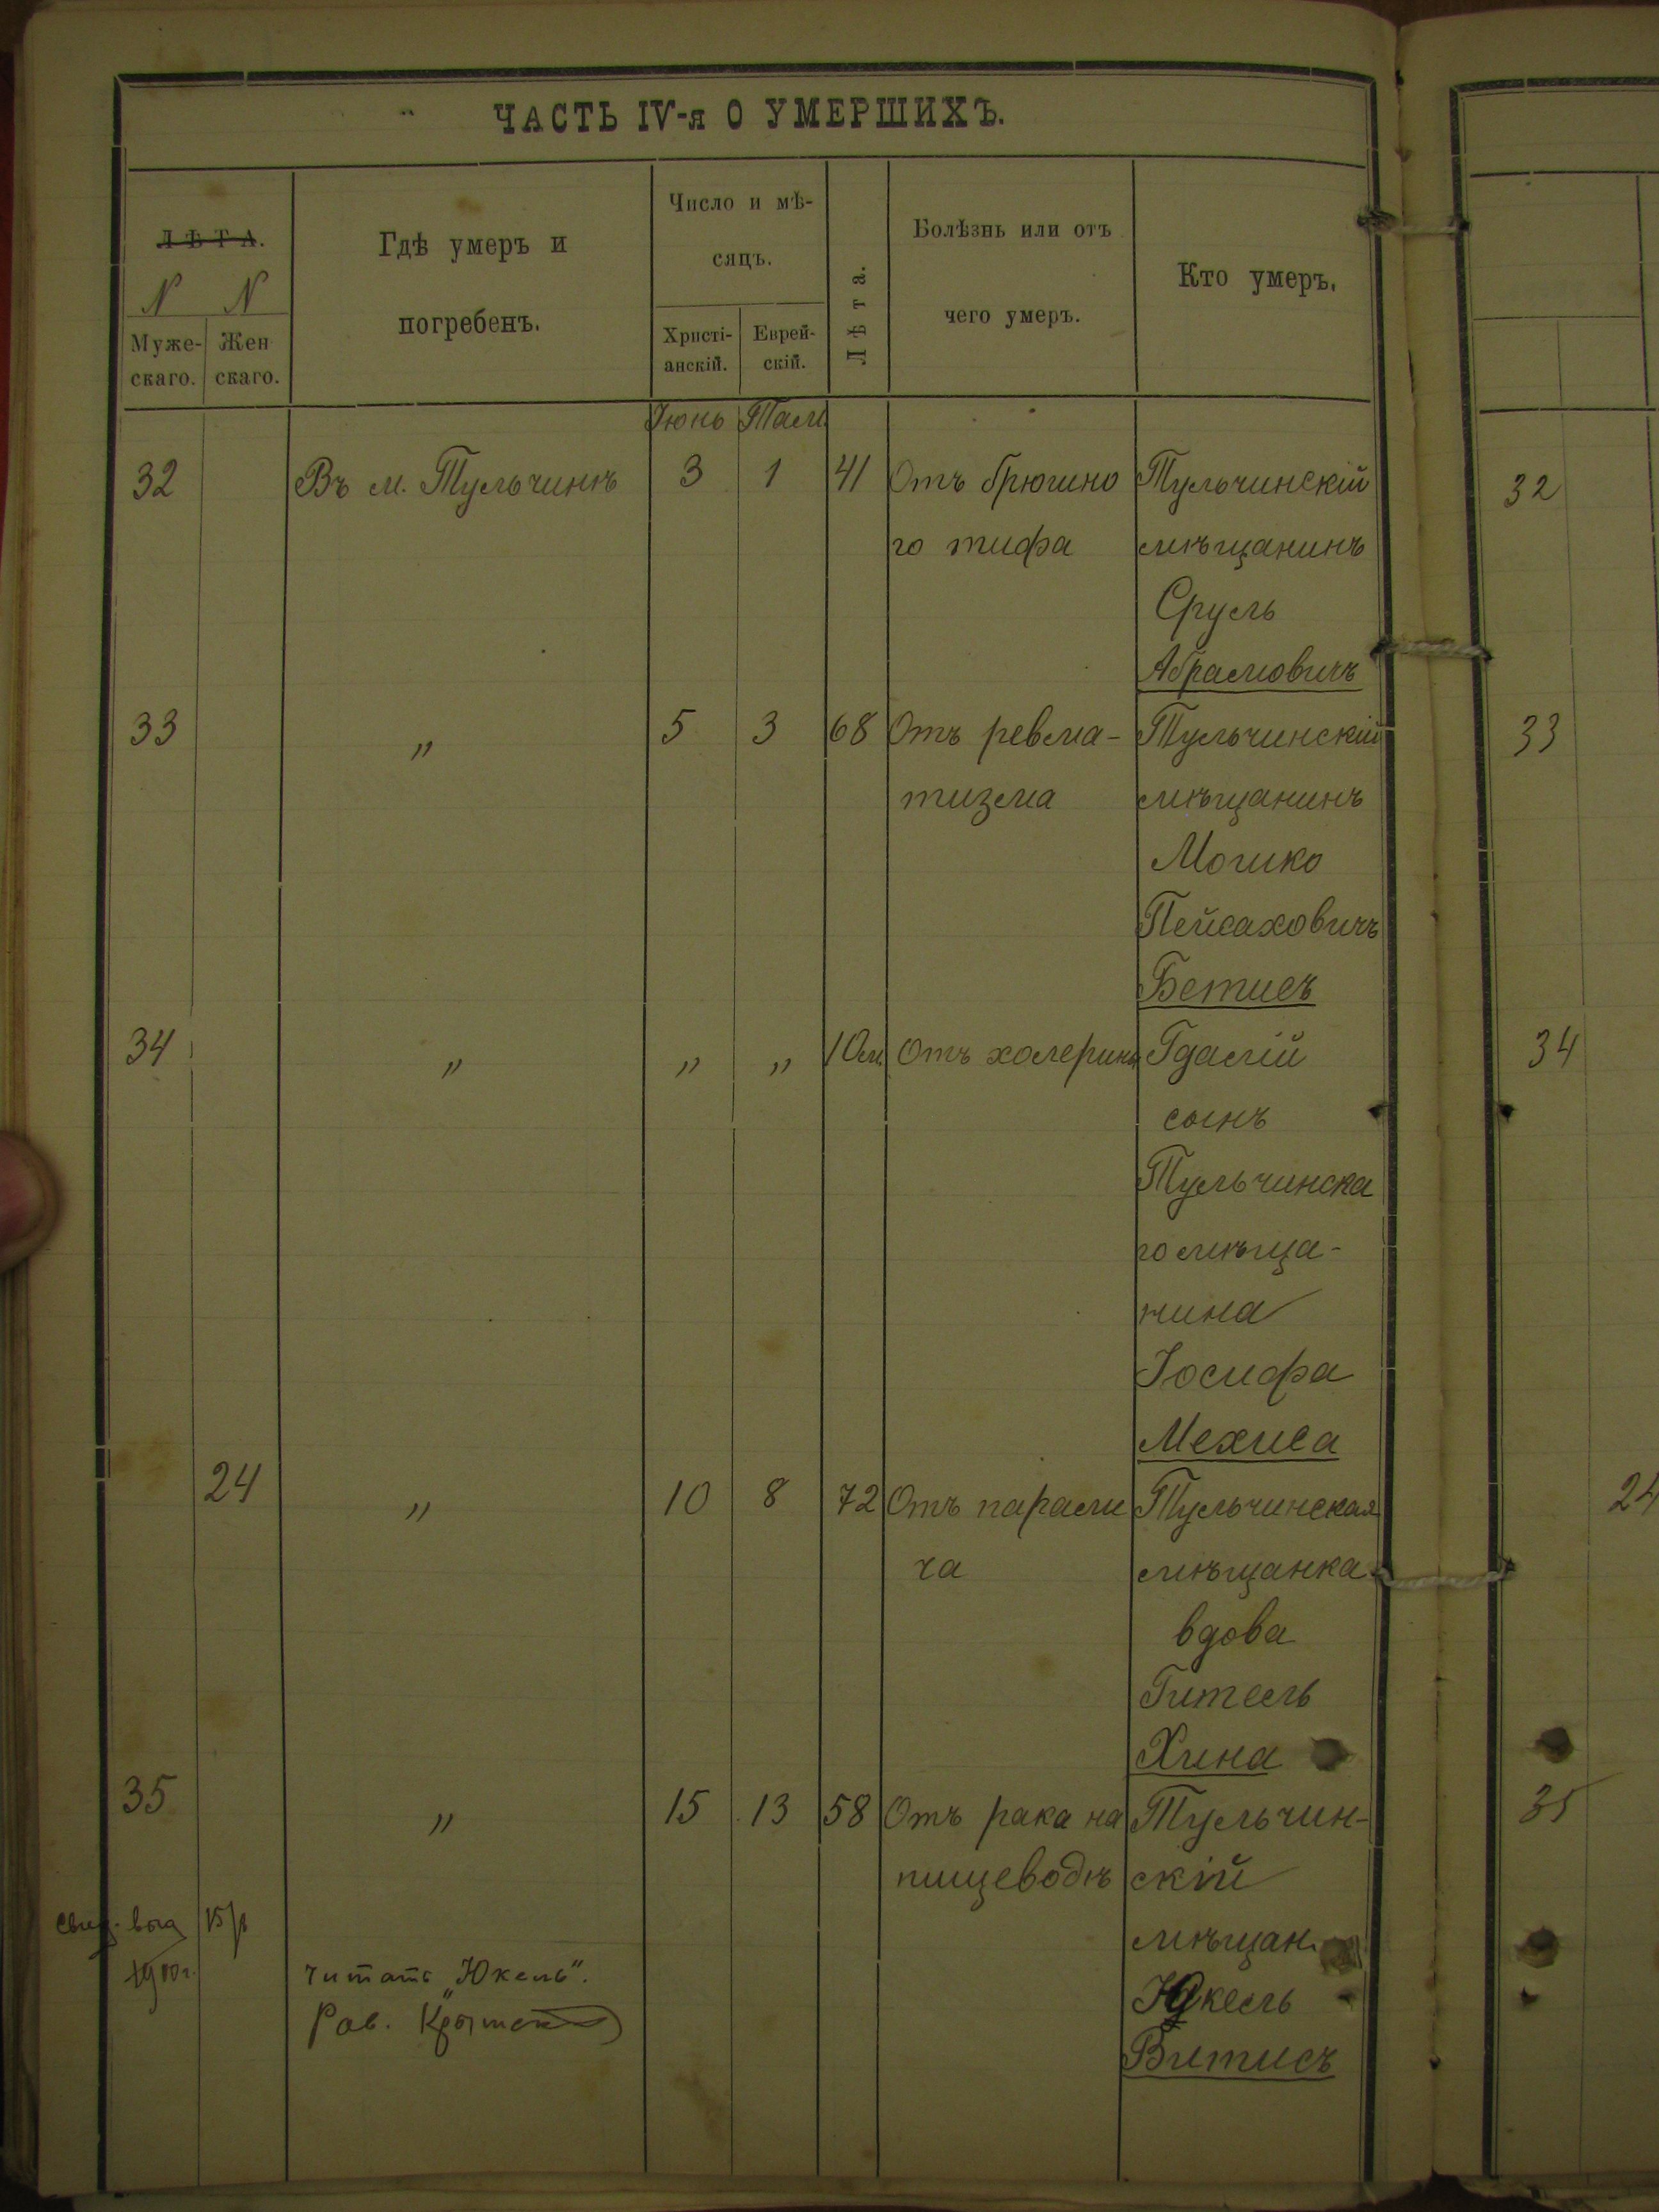 ЧАСТЬ IV-я О УМЕРШИХЪ.
ЛѢТА.
N N
Муже-
скаго.
Жен
скаго.
Гдѣ умеръ и
погребенъ.
Число и мѣ-
сяцъ.
Христі-
анскій.
Еврей-
скій.
Лѣта.
Болѣзнь или отъ
чего умеръ.
Кто умеръ.
Іюнь Там.
32 Въ м. Тульчинѣ 3 1 41 Отъ брюшно Тульчинскій 32
го тифа мѣщанинъ
Сруль
Абрамовичъ
33 " 5 3 68 Отъ ревма- Тульчинскій 33
тизма мѣщанинъ
Мошко
Пейсаховичъ
Бетисъ
34 " " " 10м. Отъ холерины Гдалій 34
сынъ
Тульчинска
го мѣща-
нина
Іосифа
Мехиса
24 " 10 8 72 Отъ парали Тульчинская 24
ча мѣщанка
вдова
Гитель
Хина
35 " 15 13 58 Отъ рака на Тульчин- 35
пищеводѣ скій
мѣщан.
Юкель
Витисъ
1900г.
читать „Юкель".
Рав.